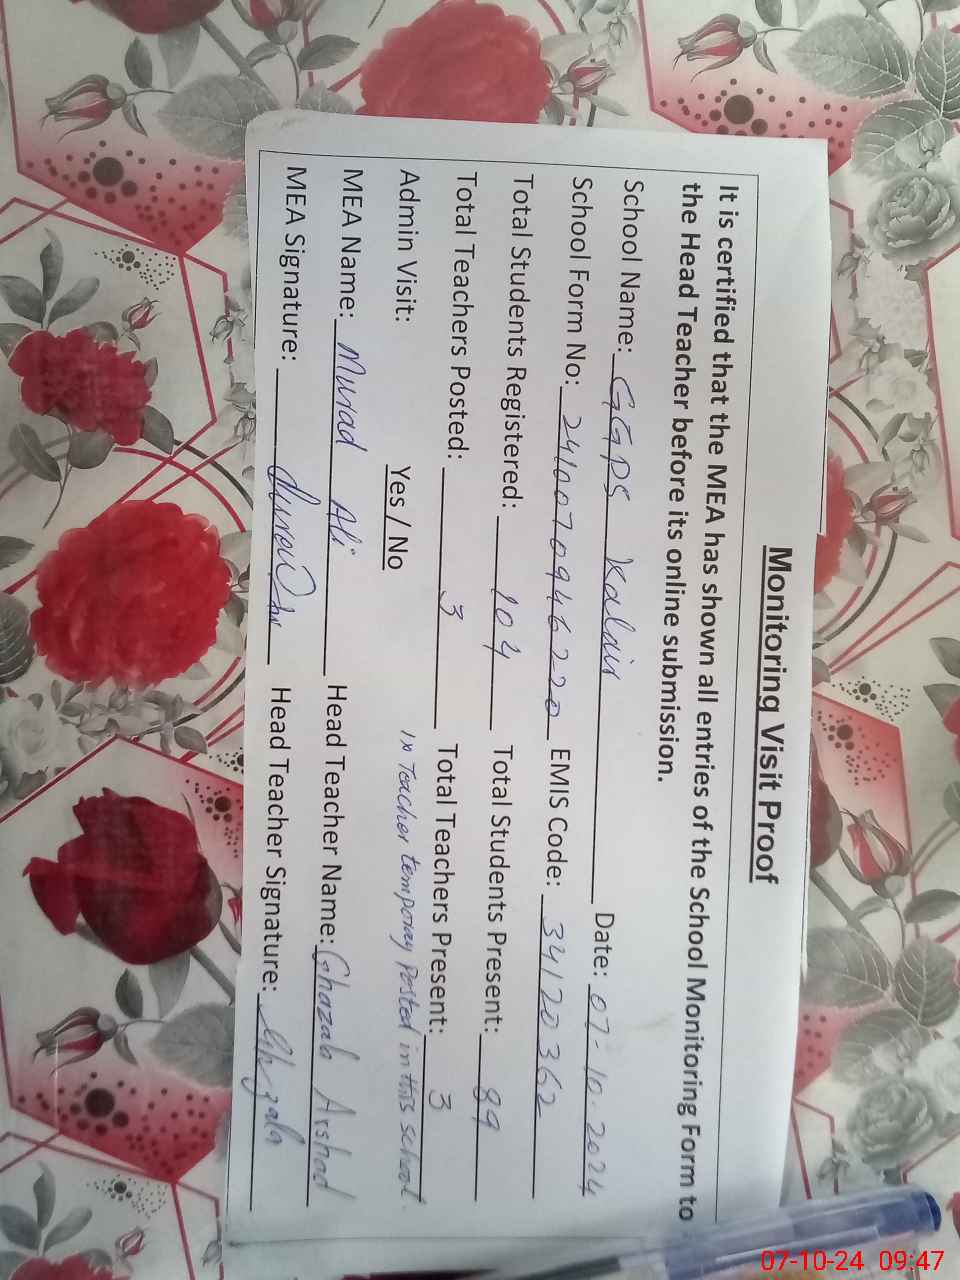 Monitoring Visit Proof
It is certified that the MEA has shown all entries of the School Monitoring Form to
the Head Teacher before its online submission.
School Name: GGPS Kalair Date: 07-10-2024
School Form No: 2410070946220 EMIS Code: 34120362
Total Students Registered: 104 Total Students Present: 89
Total Teachers Posted: 3 Total Teachers Present: 3
Admin Visit: Yes / No 1x Teacher temporay posted in this school.
MEA Name: Murad Ali Head Teacher Name: Ghazala Arshad
MEA Signature: Head Teacher Signature: Ghazala
07-10-24 09:47